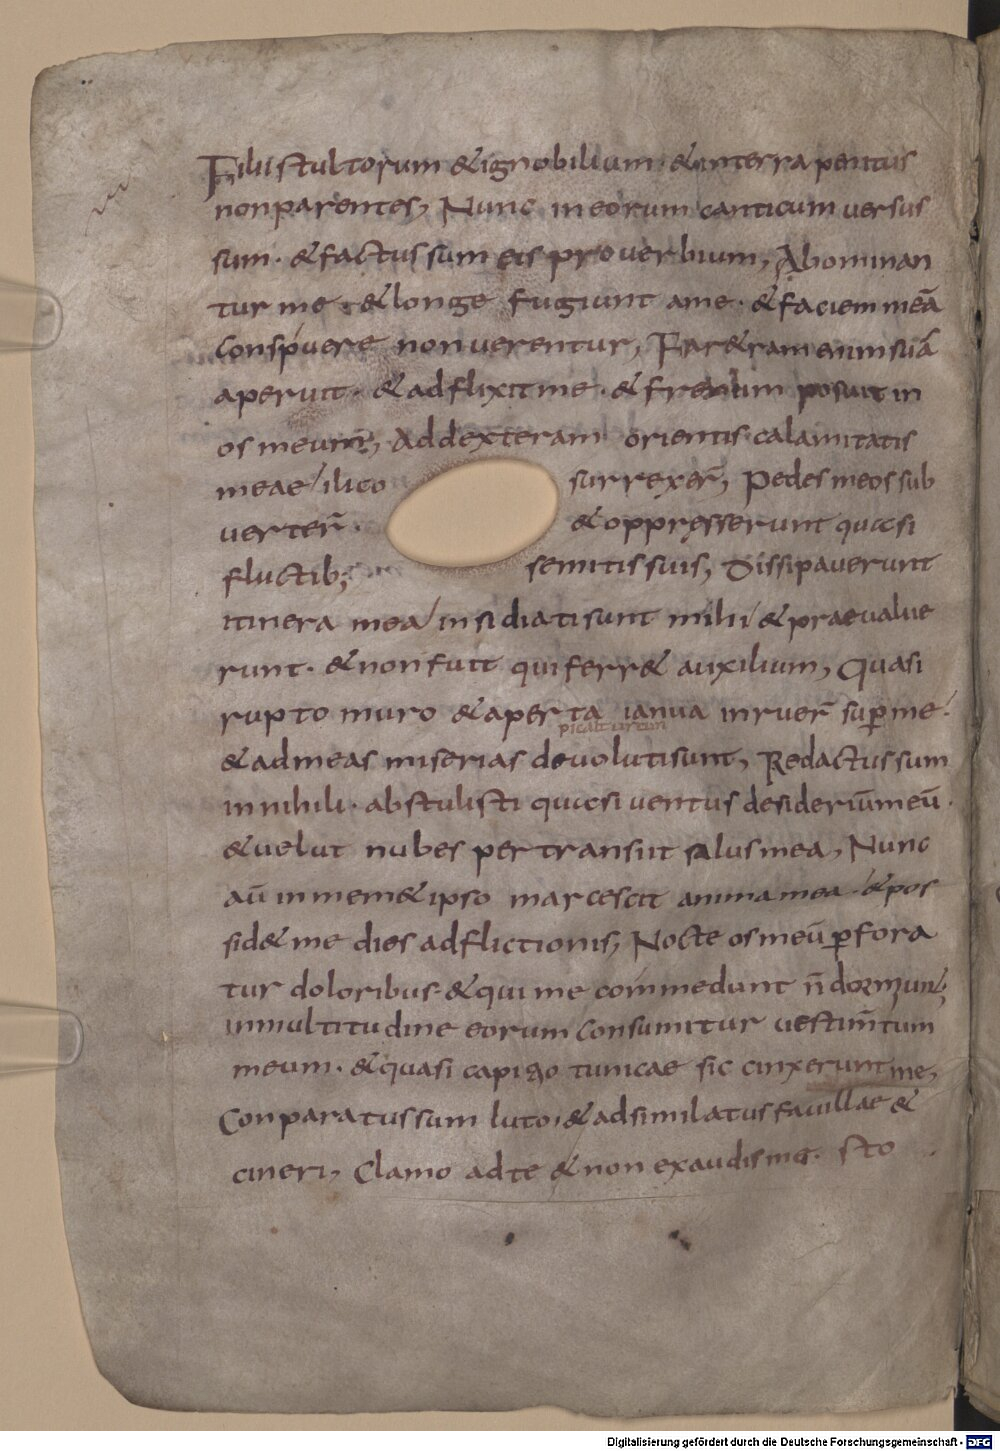 Filii stultorum & ignobilium · & in terra penitus
non parentes, Nunc in eorum canticum versus
sum · & factus sum eis proverbium, Abominan
tur me · & longe fugiunt a me · & faciem meā
conspuere non verentur, Far&ram enim suā
aperuit · & adflixit me · & frenum posuit in
os meum, Ad dexteram orientis calamitatis
meae ilico surrexer̄, Pedes meos sub
verter̄ · & oppresserunt quasi
fluctib; semitis suis, Dissipaverunt
itinera mea insidiati sunt mihi & praevalue
runt · & non fuit qui ferr& auxilium, Quasi
rupto muro & aperta ianua inruer̄ sup̄ me ·
& ad meas miserias devoluti sunt, Redactus sum
in nihili · abstulisti quasi ventus desideriūmeū ·
& velut nubes pertransiit salus mea, Nunc
aū in mem& ipso marcescit anima mea · & pos
sid& me dies adflictionis, Nocte os meū ꝑfora
tur doloribus · & qui me commedunt n̄ dormiunt;
in multitudine eorum consumitur vestim̄tum
meum · & quasi capigo tunicae sic cinxerunt me,
Conparatus sum luto · & adsimilatus favillae &
cineri, Clamo ad te & non exaudis me · sto
Digitalisierung gefördert durch die Deutsche Forschungsgemeinschaft - DFG